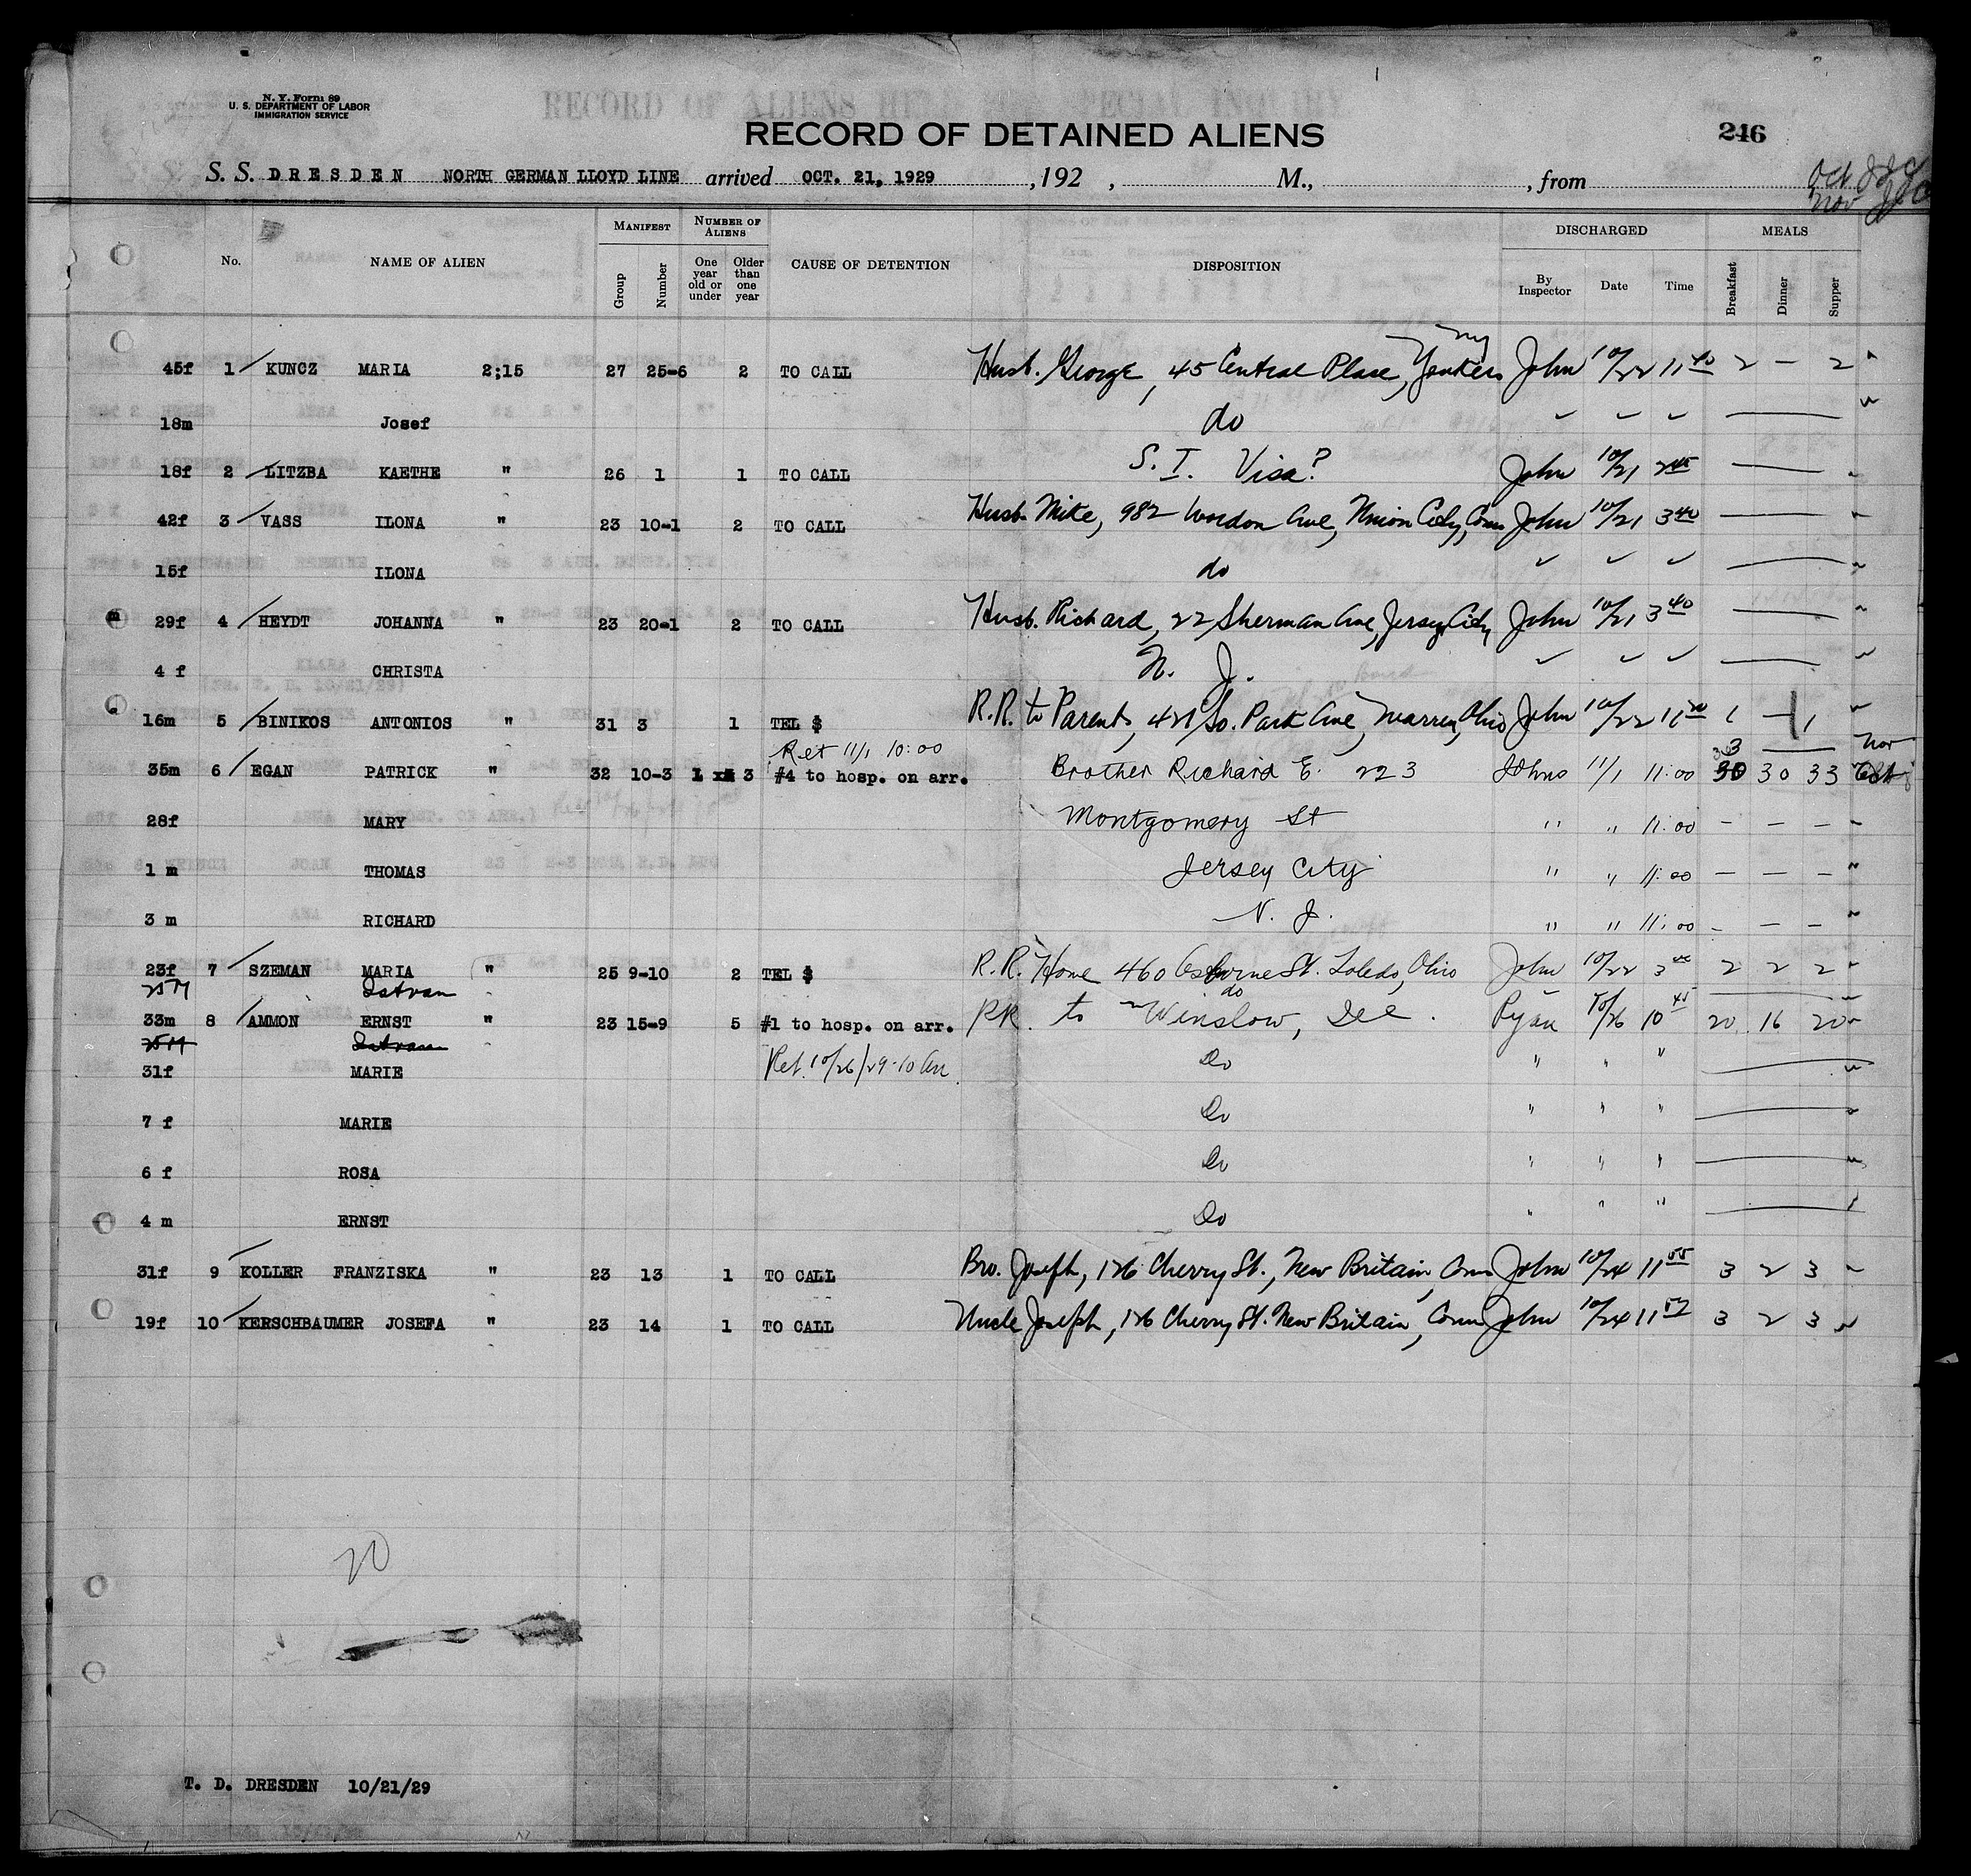 N. Y. Form 89
U. S. DEPARTMENT OF LABOR
IMMIGRATION SERVICE
RECORD OF DETAINED ALIENS
246
S. S. DRESDEN NORTH GERMAN LLOYD LINE arrived OCT. 21, 1929 , 192 , M., , from
Oct
Nov
No. NAME OF ALIEN MANIFEST Group Number NUMBER OF ALIENS One year old or under Older than one year CAUSE OF DETENTION DISPOSITION DISCHARGED By Inspector Date Time MEALS Breakfast Dinner Supper
45f 1 KUNCZ MARIA 2;15 27 25-6 2 TO CALL Husb. George, 45 Central Place, Yonkers NY John 10/22 11 40 2 — 2 "
18m Josef do ✓ ✓ ✓ "
18f 2 LITZBA KAETHE " 26 1 1 TO CALL S. I. Visa? John 10/21 2 45
42f 3 VASS ILONA " 23 10-1 2 TO CALL Husb. Mike, 982 Wordon Ave, Union City, Conn John 10/21 3 40
15f ILONA do ✓ ✓ ✓
29f 4 HEYDT JOHANNA " 23 20-1 2 TO CALL Husb. Richard, 22 Sherman Ave, Jersey City John 10/21 3 40
4 f CHRISTA N. J. ✓ ✓ ✓
16m 5 BINIKOS ANTONIOS " 31 3 1 TEL $ R.R. to Parents, 421 So. Park Ave, Warren, Ohio John 10/22 11 20 1 — 1
Ret 11/1 10:00 3 Nov
35m 6 EGAN PATRICK " 32 10-3 1 3 #4 to hosp. on arr. Brother Richard E. 223 Johns 11/1 11:00 30 30 33 Oct
28f MARY Montgomery St " " 11:00 — — —
1 m THOMAS Jersey City " " 11:00 — — — "
3 m RICHARD N. J. " " 11:00 - — — "
23f 7 SZEMAN MARIA " 25 9-10 2 TEL $ R.R. Home 460 Osborne St. Toledo, Ohio John 10/22 3 2 2 2
25M Istvan do
33m 8 AMMON ERNST " 23 15-9 5 #1 to hosp. on arr. RR. to Winslow, Ill. Ryan 10/26 10 45 20 16 20
25M Istvan
31f MARIE Ret. 10/26/29-10 Am. Do " " "
7 f MARIE Do " " "
6 f ROSA Do " " "
4 m ERNST Do " " "
31f 9 KOLLER FRANZISKA " 23 13 1 TO CALL Bro. Joseph, 126 Cherry St., New Britain, Conn John 10/24 11 55 3 2 3
19f 10 KERSCHBAUMER JOSEFA " 23 14 1 TO CALL Uncle Joseph, 126 Cherry St. New Britain, Conn John 10/24 11 57 3 2 3
20
T. D. DRESDEN 10/21/29